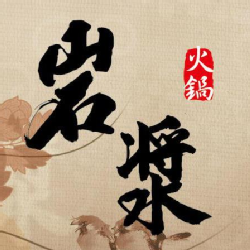 岩漿
火鍋